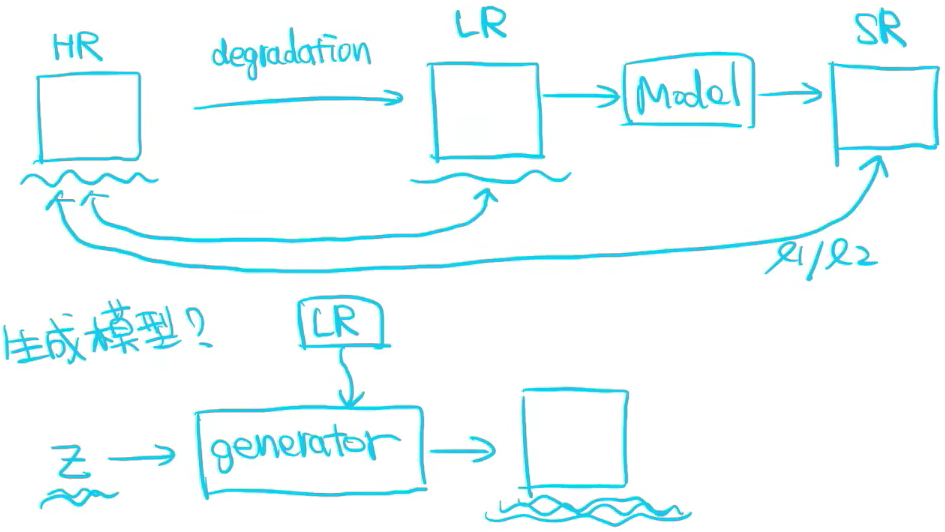 HR degradation LR SR
Model
l1/l2
生成模型? LR
z generator